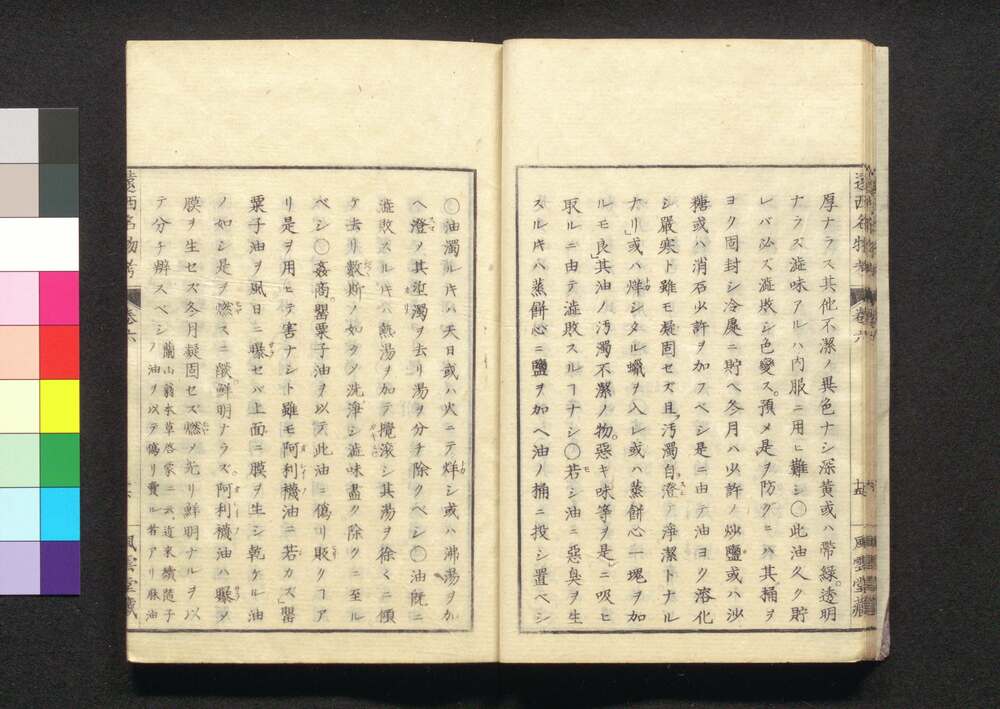 遠西名物考
卷六
十五
風雲堂藏
厚ナラス其他不潔ノ異色ナシ深黄或ハ帶緑透明
ナラズ澁味アルハ内服ニ用ヒ難シ〇此油久ク貯
レバ必ズ澁敗シ色變ス。預メ是ヲ防グニハ其桶ヲ
ヨク固封シ冷處ニ貯ヘ冬月ハ少許ノ炒鹽或ハ沙
糖或ハ消石少許ヲ加フベシ是ニ由テ油ヨク溶化
シ嚴寒ト雖モ凝固セズ且ツ汚濁自澄テ淨潔トナル
ナリ」或ハ烊シタル蠟ヲ入レ或ハ蒸餅心一塊ヲ加
ルモ良」其油ノ汚濁不潔ノ物。惡キ味等ヲ是ニ吸ヒ
取ルニ由テ澁敗スルヿナシ〇若シ油ニ惡臭ヲ生
スルキハ蒸餅心ニ鹽ヲ加ヘ油ノ桶ニ投シ置ベシ
〇油濁ルキハ天日或ハ火ニテ烊シ或ハ沸湯ヲ加
ヘ澄メ其垽濁ヲ去リ湯ヲ分チ除クベシ〇油既ニ
澁敗スルキハ熱湯ヲ加テ攪滾シ其湯ヲ徐々ニ傾
ケ去リ數斯ノ如クシ洗淨シ澁味盡ク除クニ至ル
ベシ〇姦商。罌粟子油ヲ以テ此油ニ僞リ販クヿア
リ是ヲ用ヒテ害ナシト雖モ阿利襪油ニ若カス」罌
粟子油ヲ風日ニ曝セバ上面ニ膜ヲ生シ乾ケル油
ノ如シ是ヲ燃スニ燄鮮明ナラズ阿利襪油ハ曝メ
膜ヲ生セズ冬月凝固セズ燃メ光リ鮮明ナルヲ以
テ分チ辨スベシ
蘭山翁本草啓蒙ニ云近來續隨子
ノ油ヲ以テ僞リ賣ル者アリ豚油
遠西名物考
卷六
風雲堂藏